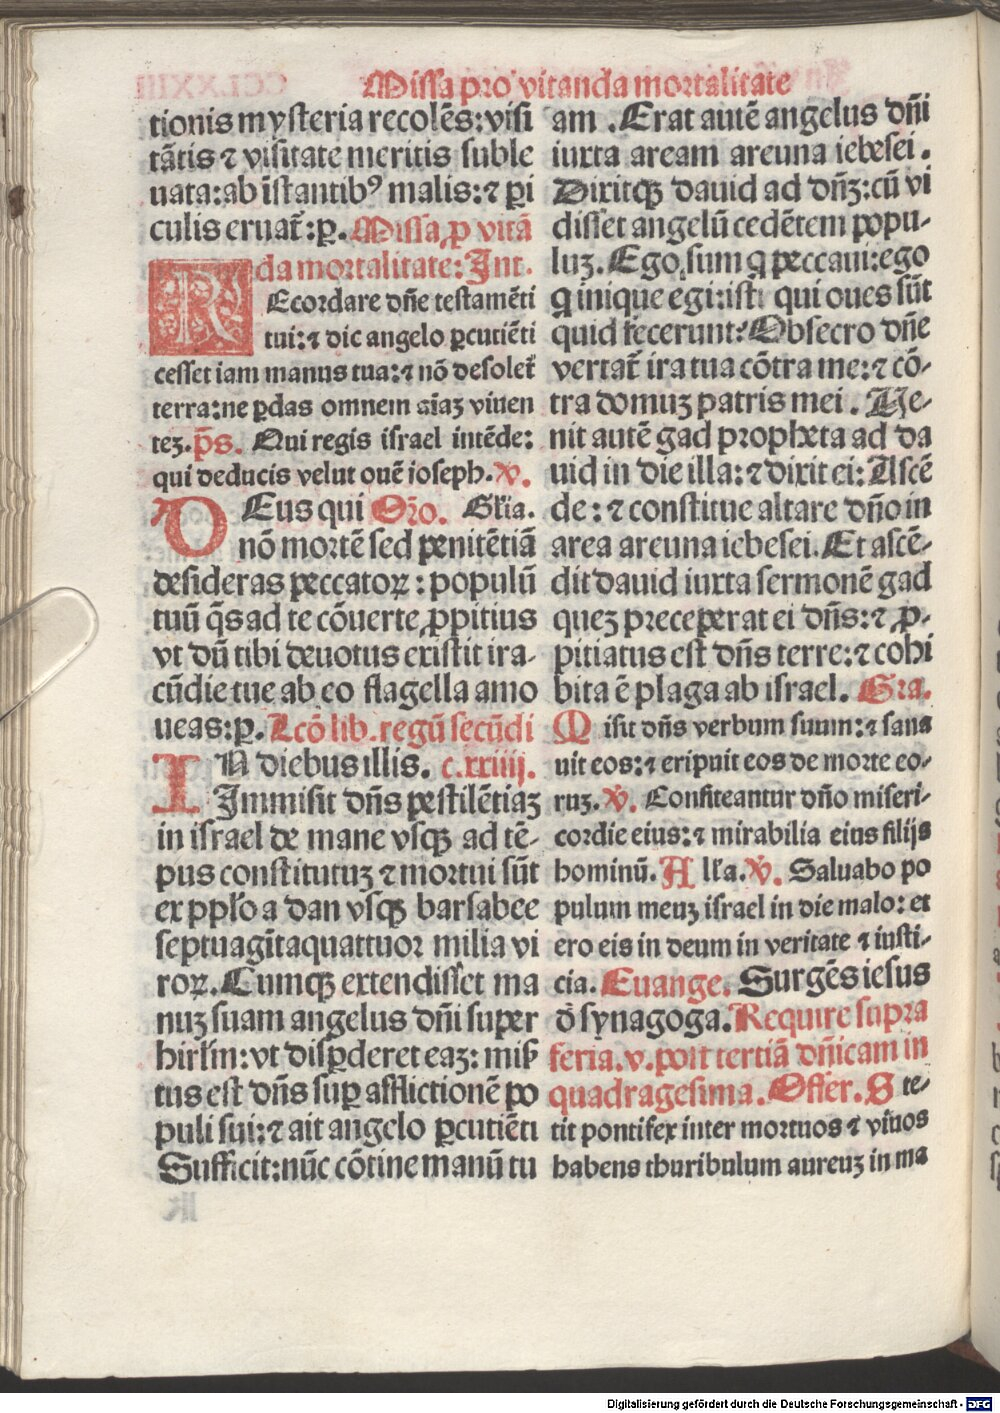 Missa pro vitanda mortalitate
tionis mysteria recolēs: visi
tātis ⁊ visitate meritis suble
uata: ab īstantibꝰ malis: ⁊ ꝑi
culis eruat̄: ꝑ. Missa ꝓ vitā
da mortalitate: Int.
REcordare dn̄e testamēti
tui: ⁊ dic angelo ꝑcutiēti
cesset iam manus tua: ⁊ nō desolet̄
terra: ne ꝑdas omnem aīaꝫ viuen
teꝫ. p̄s. Qui regis israel intēde:
qui deducis velut ouē ioseph. v̇.
DEus qui Oŕo. Gl̄ia.
nō mortē sed penitētiā
desideras peccatoꝝ: populū
tuū q̄s ad te cōuerte ꝓpitius
vt dū tibi deuotus existit ira-
cūdie tue ab eo flagella amo
ueas: ꝑ. Lcō lib. regū secūdi
IN diebus illis. c.xxiiij.
Immisit dn̄s pestilētiaꝫ
in israel de mane vsqꝫ ad tē-
pus constitutuꝫ ⁊ mortui sūt
ex ppl̄o a dan vsqꝫ barsabee
septuagīta quattuor milia vi
roꝝ. Cumqꝫ extendisset ma
nuꝫ suam angelus dn̄i super
hirl̄m: vt disꝑderet eaꝫ: mis̄
tus est dn̄s suꝑ afflictionē po
puli sui: ⁊ ait angelo ꝑcutiēti
Sufficit: nūc cōtine manū tu
am. Erat autē angelus dn̄i
iuxta aream areuna iebesei.
Dixitqꝫ dauid ad dn̄ꝫ: cū vi
disset angelū cedētem popu-
luꝫ. Ego sum q peccaui: ego
q inique egi: isti qui oues sūt
quid fecerunt? Obsecro dn̄e
vertat̄ ira tua cōtra me: ⁊ cō-
tra domuꝫ patris mei. Ve-
nit autē gad propheta ad da
uid in die illa: ⁊ dixit ei: Ascē
de: ⁊ constitue altare dn̄o in
area areuna iebesei. Et ascē-
dit dauid iuxta sermonē gad
queꝫ preceperat ei dn̄s: ⁊ ꝓ-
pitiatus est dn̄s terre: ⁊ cohi
bita ē plaga ab israel. Gra.
Misit dn̄s verbum suum: ⁊ sana
uit eos: ⁊ eripuit eos de morte eo-
ruꝫ. v̇. Confiteantur dn̄o miseri-
cordie eius: ⁊ mirabilia eius filijs
hominū. All̄a. v̇. Saluabo po
pulum meuꝫ israel in die malo: et
ero eis in deum in veritate ⁊ iusti-
cia. Euange. Surgēs iesus
d̄ synagoga. Require supra
feria. v. post tertiā dn̄icam in
quadragesima. Offer. Ste-
tit pontifex inter mortuos ⁊ viuos
habens thuribulum aureuꝫ in ma
Digitalisierung gefördert durch die Deutsche Forschungsgemeinschaft - DFG